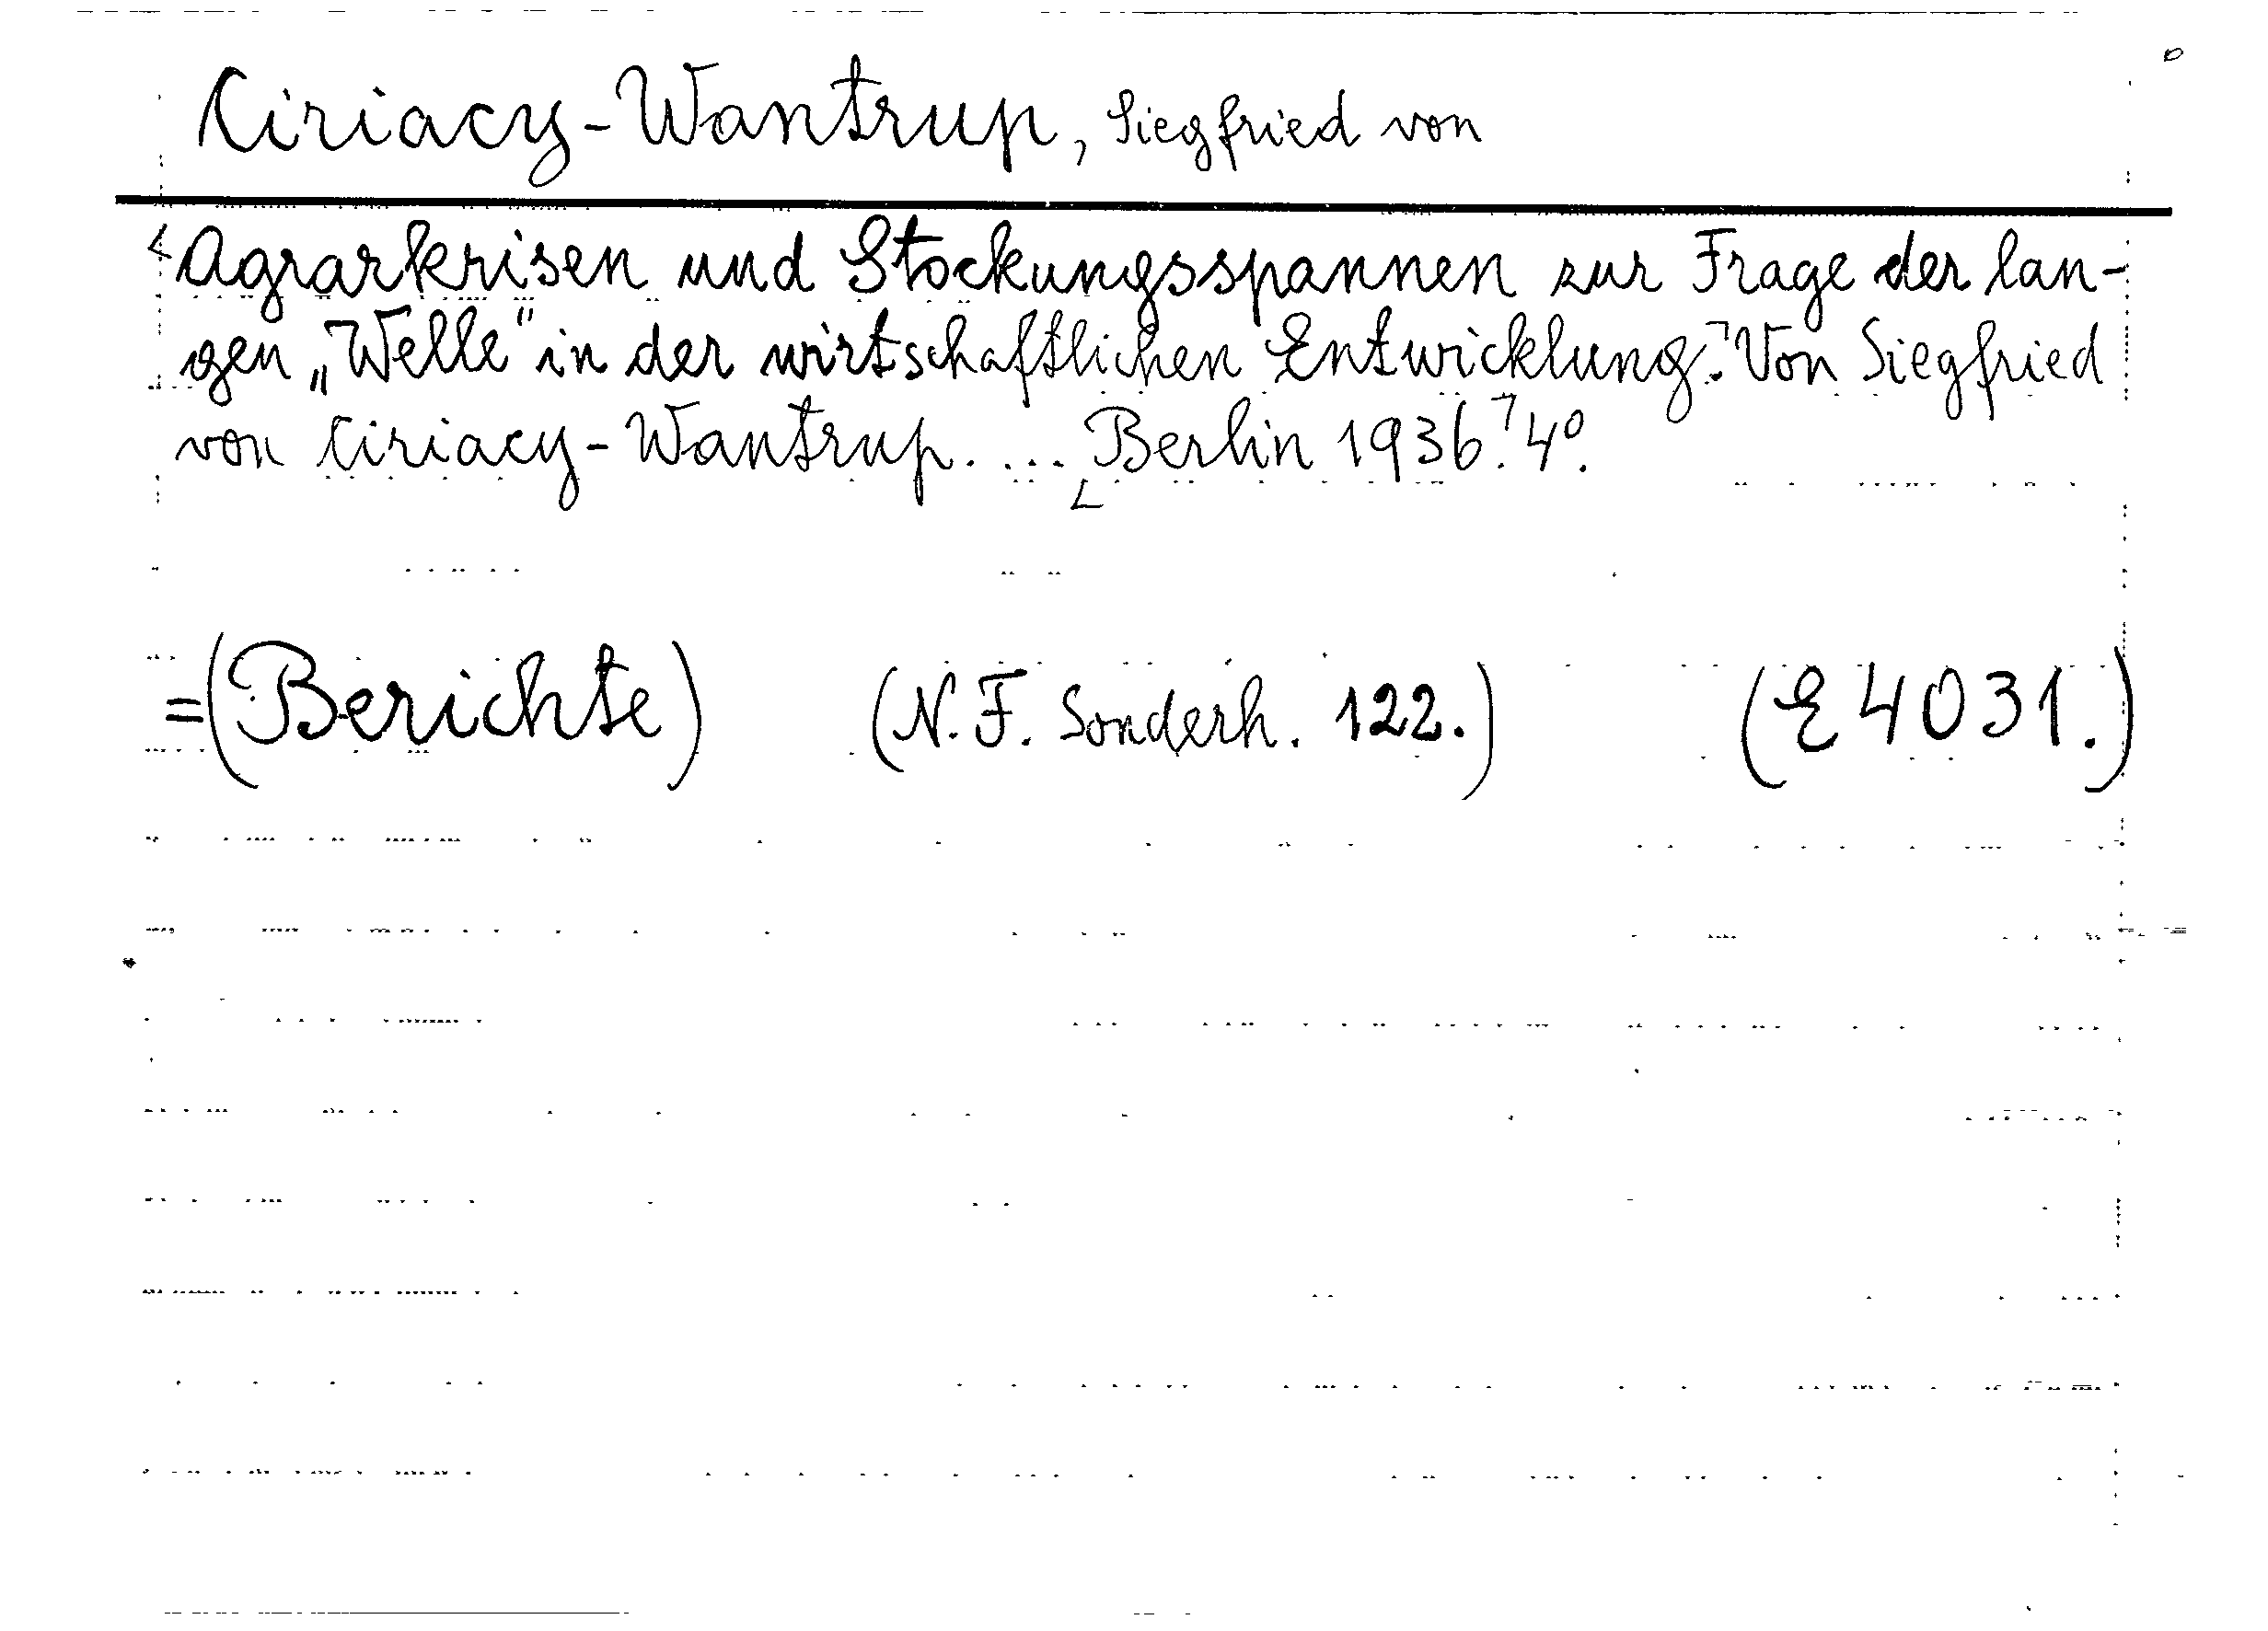 Ciriacy-Wantrup, Siegfried von
Agrarkrisen und Stockungsspannen zur Frage der lan-
gen „Welle" in der wirtschaftlichen Entwicklung. Von Siegfried
von Ciriacy-Wantrup. ... Berlin 1936. 4°.
=(Berichte) (N. F. Sonderh. 122.) (E 4031.)